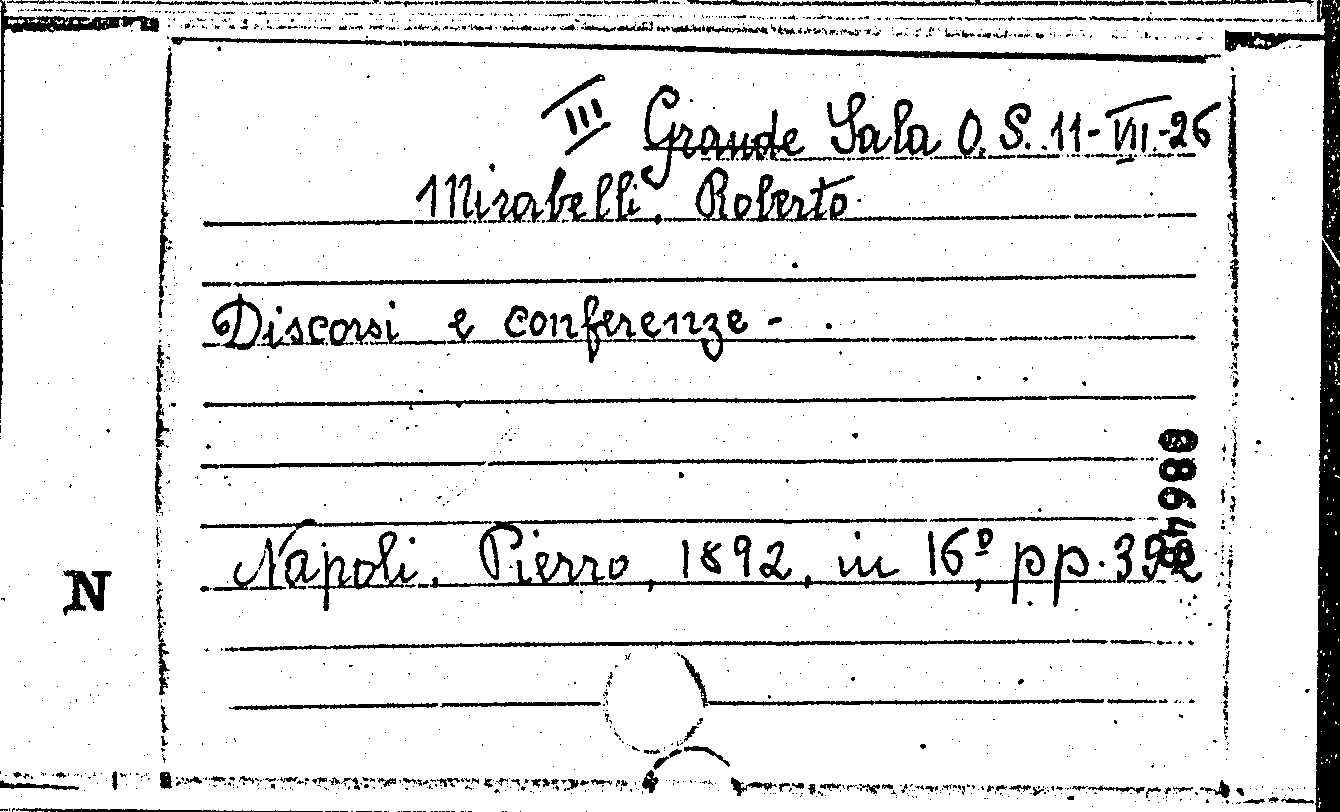 III Grande Sala O. S. 11-VII-26
Mirabelli, Roberto.
Discorsi e conferenze -
Napoli, Pierro, 1892, in 16º, pp. 392
N